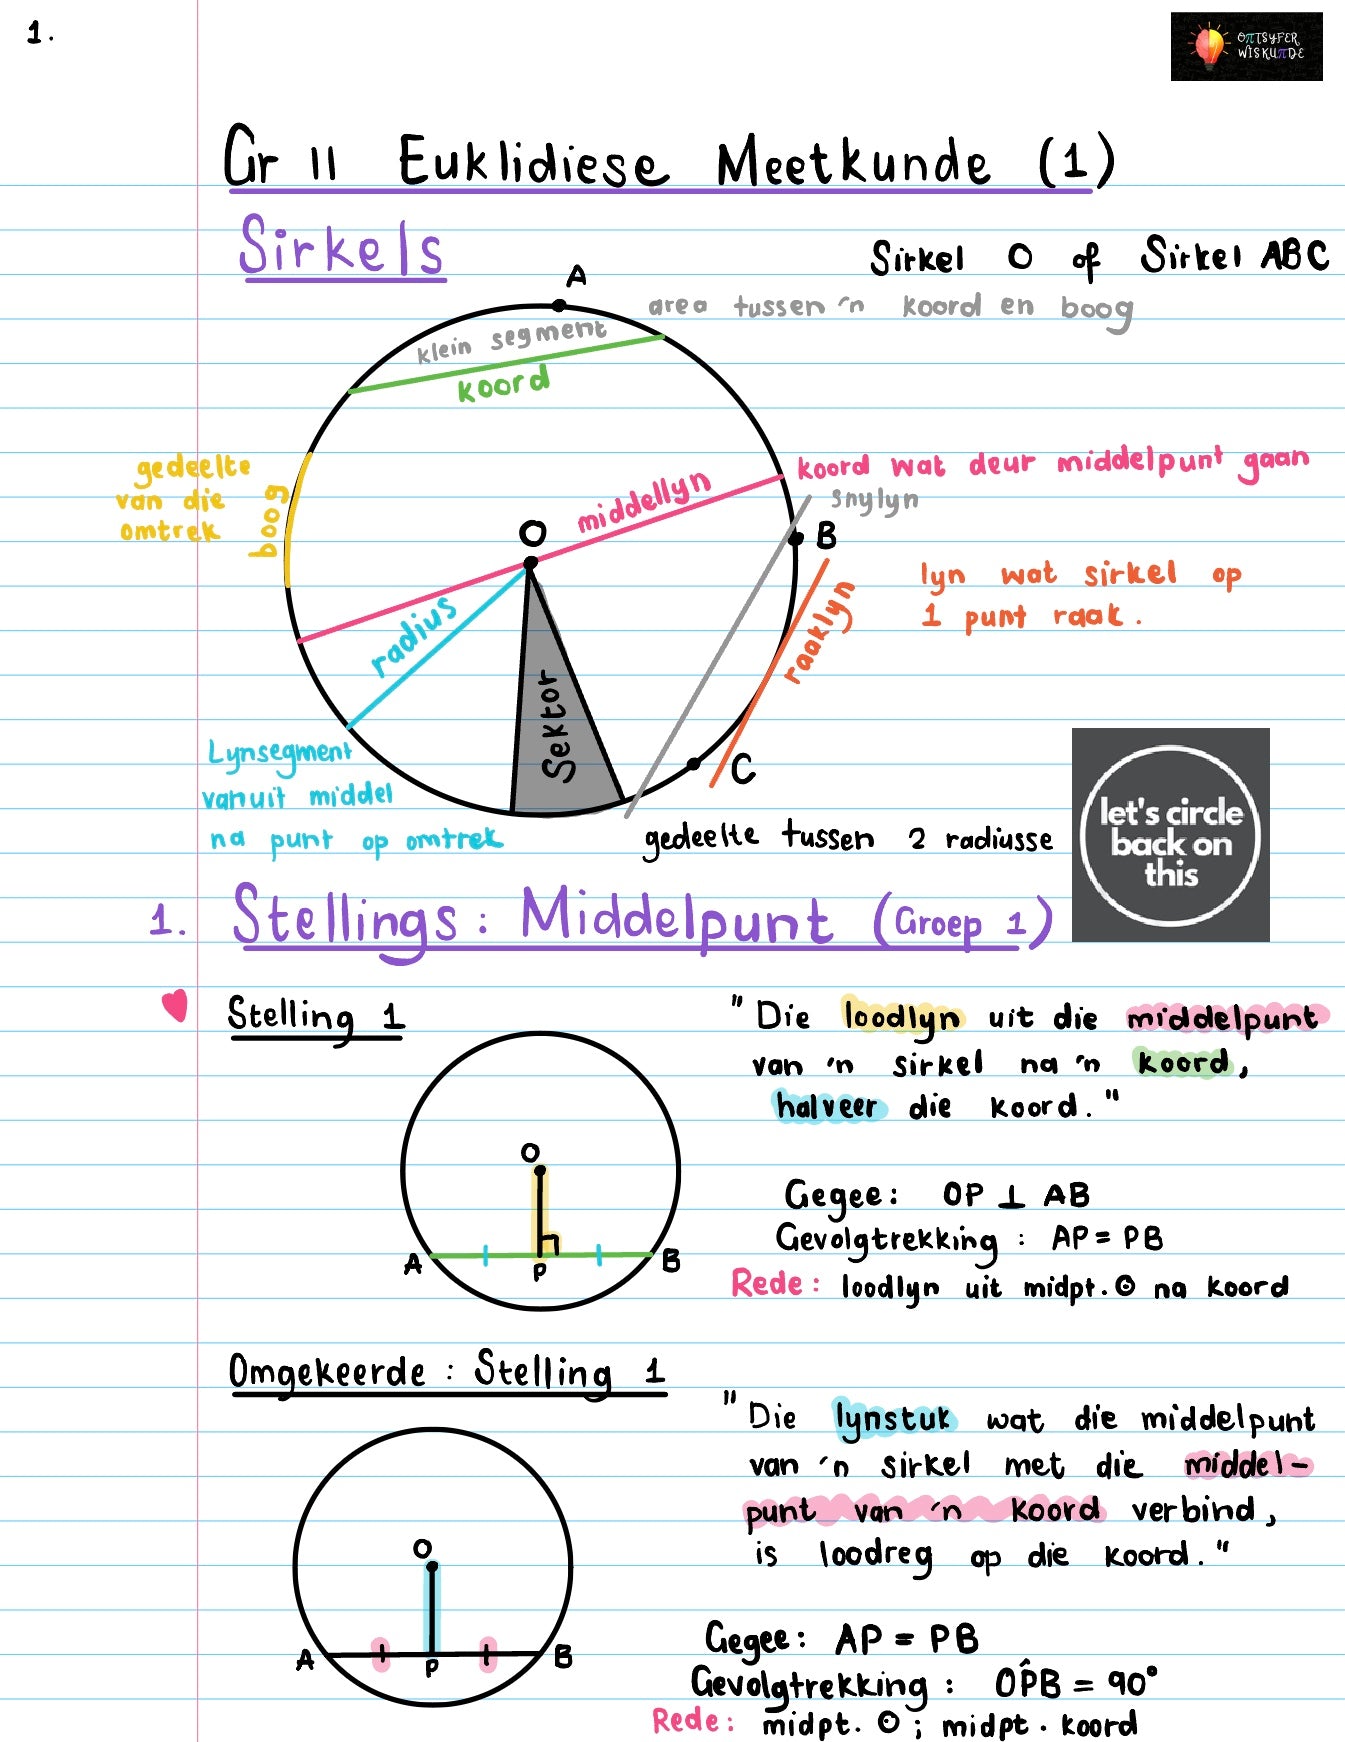 1.
OπTSYFER
WISKUπDE
Gr 11 Euklidiese Meetkunde (1)
Sirkels
Sirkel O of Sirkel ABC
A
area tussen 'n koord en boog
klein segment
koord
gedeelte
van die
omtrek
boog
middellyn
koord wat deur middelpunt gaan
snylyn
O
B
radius
raaklyn
lyn wat sirkel op
1 punt raak.
Sektor
C
Lynsegment
vanuit middel
na punt op omtrek
gedeelte tussen 2 radiusse
let's circle
back on
this
1. Stellings: Middelpunt (Groep 1)
Stelling 1
"Die loodlyn uit die middelpunt
van 'n sirkel na 'n koord,
halveer die koord."
O
A
P
B
Gegee: OP ⊥ AB
Gevolgtrekking : AP = PB
Rede: loodlyn uit midpt. ⊙ na koord
Omgekeerde : Stelling 1
"Die lynstuk wat die middelpunt
van 'n sirkel met die middel-
punt van 'n koord verbind,
is loodreg op die koord."
O
A
P
B
Gegee: AP = PB
Gevolgtrekking : OP̂B = 90°
Rede: midpt. ⊙ ; midpt. koord